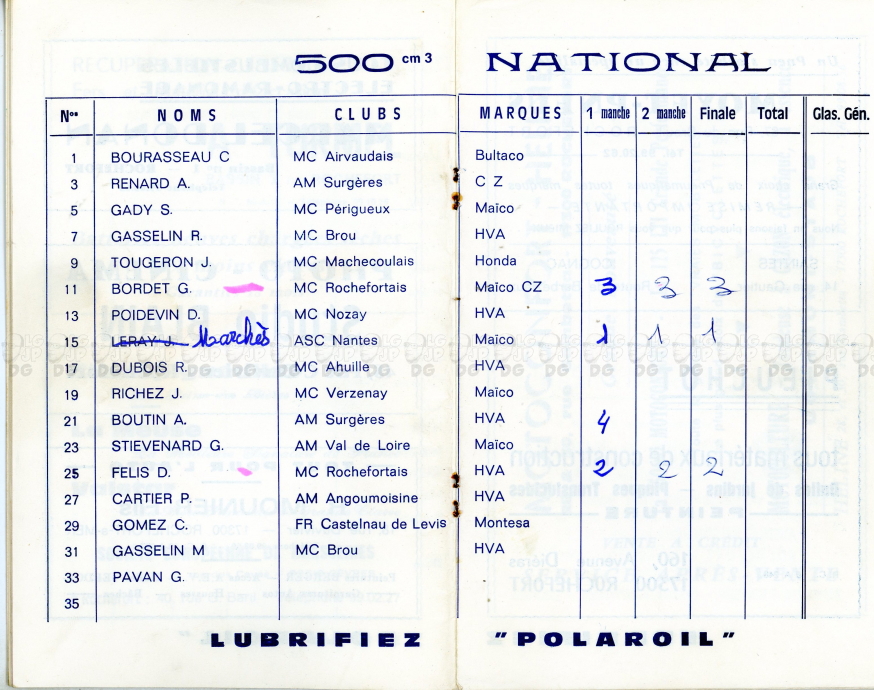 500 cm3 NATIONAL
Nos NOMS CLUBS MARQUES 1 manche 2 manche Finale Total Glas. Gén.
1 BOURASSEAU C MC Airvaudais Bultaco
3 RENARD A. AM Surgères C Z
5 GADY S. MC Périgueux Maïco
7 GASSELIN R. MC Brou HVA
9 TOUGERON J. MC Machecoulais Honda
11 BORDET G. MC Rochefortais Maïco CZ 3 3 3
13 POIDEVIN D. MC Nozay HVA
15 LERAY J. Marchès ASC Nantes Maïco 1 1 1
17 DUBOIS R. MC Ahuille HVA
19 RICHEZ J. MC Verzenay Maïco
21 BOUTIN A. AM Surgères HVA 4
23 STIEVENARD G. AM Val de Loire Maïco
25 FELIS D. MC Rochefortais HVA 2 2 2
27 CARTIER P. AM Angoumoisine HVA
29 GOMEZ C. FR Castelnau de Levis Montesa
31 GASSELIN M MC Brou HVA
33 PAVAN G.
35
LUBRIFIEZ "POLAROIL"